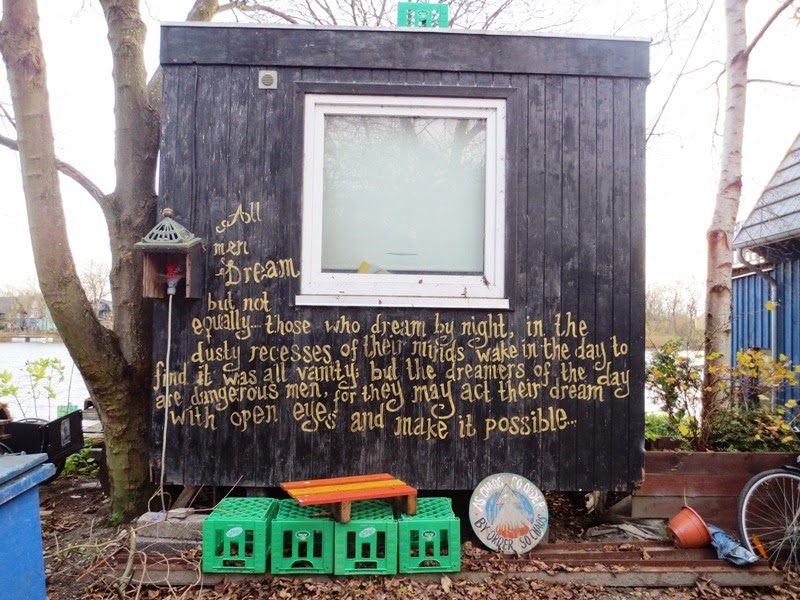 All
men
Dream
but not
equally... those who dream by night, in the
dusty recesses of their minds wake in the day to
find it was all vanity; but the dreamers of the day
are dangerous men, for they may act their dream
with open eyes and make it possible...
AS CHAOS SO ORDER
BY ORDER SO CHAOS